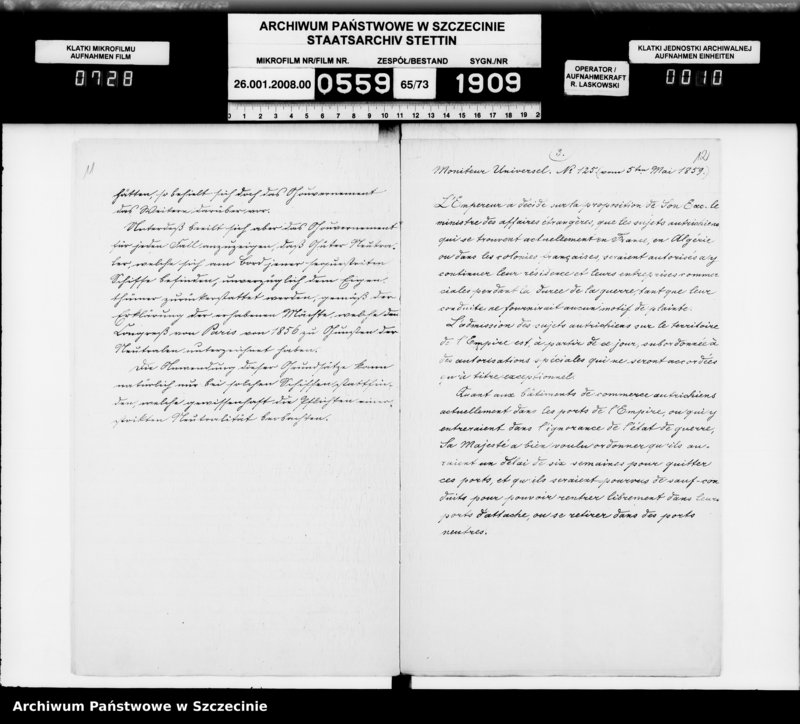 ARCHIWUM PAŃSTWOWE W SZCZECINIE
STAATSARCHIV STETTIN
KLATKI MIKROFILMU
AUFNAHMEN FILM
0728
MIKROFILM NR/FILM NR.
ZESPÓŁ/BESTAND
SYGN./NR
26.001.2008.00
0559
65/73
1909
OPERATOR /
AUFNAHMEKRAFT
R. LASKOWSKI
KLATKI JEDNOSTKI ARCHIWALNEJ
AUFNAHMEN EINHEITEN
0010
0 1 2 3 4 5 6 7 8 9 10 11 12 13 14 15 16 17 18 19 20
11
hätten, so behielt sich doch das Gouvernement
das Weitere darüber vor.
Unterdeß beeilt sich aber das Gouvernement
für jeden Fall anzuzeigen, daß Güter Neutra-
ler, welche sich am Bord jener sequestrirten
Schiffe befinden, unverzüglich dem Eigen-
thümer zurückerstattet werden, gemäß der
Erklärung der erhabenen Mächte, welche den
Congreß von Paris von 1856 zu Gunsten der
Neutralen unterzeichnet haben.
Die Anwendung dieser Grundsätze kann
natürlich nur bei solchen Schiffen stattfin-
den, welche gewissenhaft die Pflichten einer
strikten Neutralität beobachten.
3.
12
Moniteur Universel. No 125 (vom 5ten Mai 1859.)
L'Empereur a décidé sur la proposition de Son Exc. le
ministre des affaires étrangères, que les sujets autrichiens
qui se trouvent actuellement en France, en Algérie
ou dans les colonies françaises, seraient autorisés à y
continuer leur résidence et leurs entreprises commer
ciales pendant la durée de la guerre, tant que leur
conduite ne fournirait aucun motif de plainte.
L'admission des sujets autrichiens sur le territoire
de l'Empire est, à partir de ce jour, subordonnée à
des autorisations spéciales qui ne seront accordées
qu'à titre exceptionnel.
Quant aux bâtiments de commerce autrichiens
actuellement dans les ports de l'Empire, ou qui y
entreraient dans l'ignorance de l'état de guerre,
Sa Majesté a bien voulu ordonner qu'ils au-
raient un délai de six semaines pour quitter
ces ports, et qu'ils seraient pourvus de sauf-con
duits pour pouvoir rentrer librement dans leurs
ports d'attache, ou se retirer dans des ports
neutres.
Archiwum Państwowe w Szczecinie